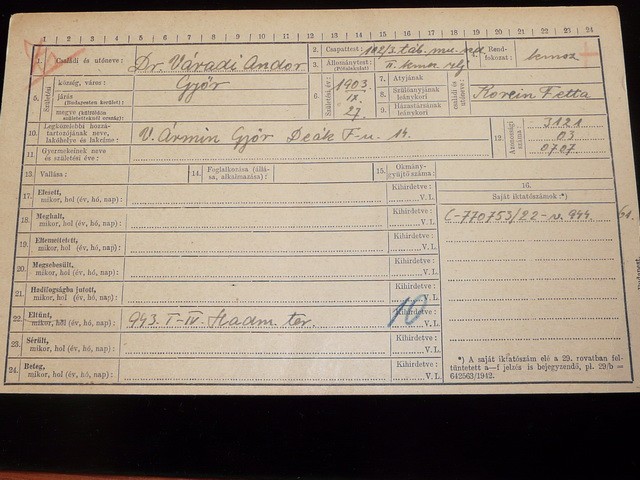 1 2 3 4 5 6 7 8 9 10 11 12 13 14 15 16 17 18 19 20 21 22 23 24
1. Családi és utóneve: Dr. Váradi Andor
2. Csapattest: 102/3. táb. mu. szd
3. Állománytest: (Pótalakulat) II.
4. Rendfokozat: kmsz
5. Születési
község, város: Győr
járás (Budapesten kerület):
megye (külföldön születetteknél ország):
6. Születési év: 1903 IX. 27.
7. Atyjának
8. Szülőanyjának leánykori
9. Házastársának leánykori
családi és utóneve: Korein Etta
10. Legközelebbi hozzátartozójának neve, lakóhelye és lakcíme: V. Armin Győr Deák F-u. 14.
11. Gyermekeinek neve és születési éve:
12. Azonossági száma: 3121 03 0707
13. Vallása:
14. Foglalkozása (állása, alkalmazása):
15. Okmánygyűjtő száma:
16. Saját iktatószámok:*)
C-770753/22-v. 944. 61.
17. Elesett, mikor, hol (év, hó, nap): Kihirdetve: V. I.
18. Meghalt, mikor, hol (év, hó, nap): Kihirdetve: V. I.
19. Eltemettetett, mikor, hol (év, hó, nap): Kihirdetve: V. I.
20. Megsebesült, mikor, hol (év, hó, nap): Kihirdetve: V. I.
21. Hadifogságba jutott, mikor, hol (év, hó, nap): Kihirdetve: V. I.
22. Eltünt, mikor, hol (év, hó, nap): 943. I-IV. Hadm. ter. 10 Kihirdetve: V. I.
23. Sérült, mikor, hol (év, hó, nap): Kihirdetve: V. I.
24. Beteg, mikor, hol (év, hó, nap): Kihirdetve: V. I.
*) A saját iktatószám elé a 29. rovatban feltüntetett a—f jelzés is bejegyzendő, pl. 29/b = 642563/1942.